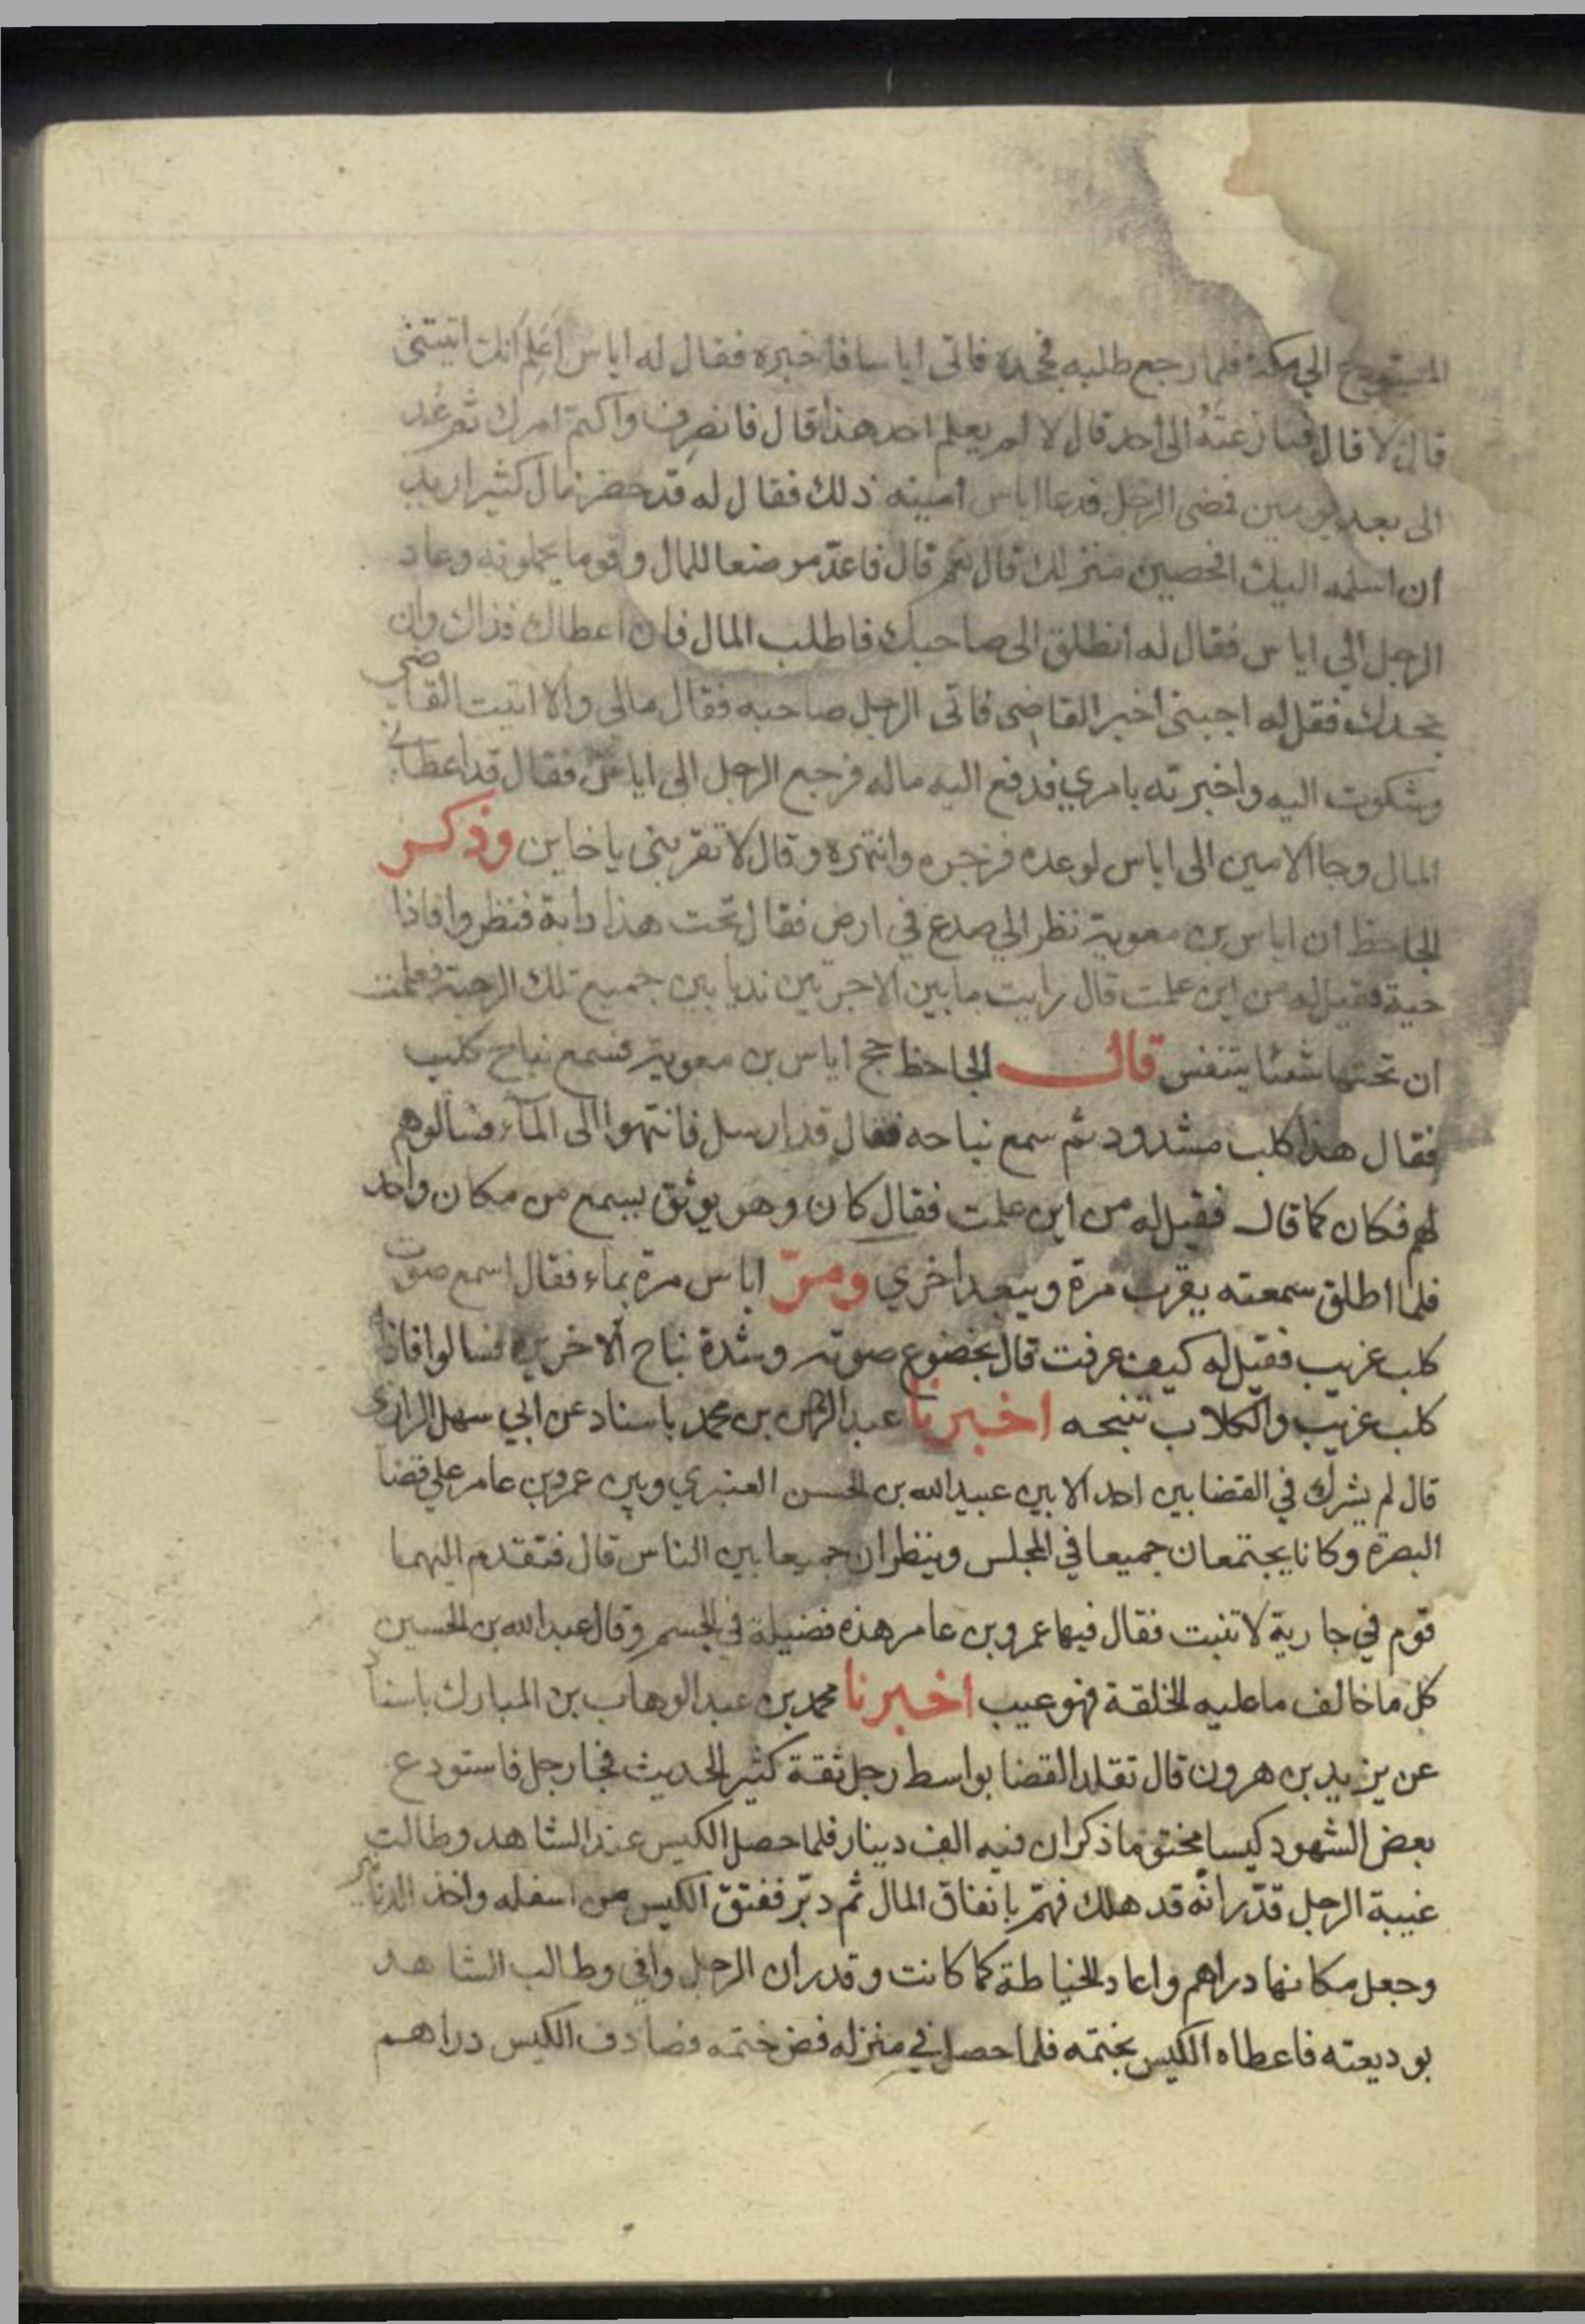 المستودع الي مكة فلما رجع طلبه فجحده فاتى اياسا فاخبره فقال له اياس اعلم انك اتيتني
قال لا قال فنازعته الى احد قال لا لم يعلم احد هذا قال فانصرف واكتم امرك ثم عُد
الى بعد يومين فمضى الرجل فدعا اياس امينه ذلك فقال له قد حضر مال كثير اريد
ان اسلمه اليك افحصين منزلك قال نعم قال فاعدّ موضعا للمال وقوما يحملونه وعاد
الرجل الي اياس فقال له انطلق الى صاحبك فاطلب المال فان اعطاك فذاك وان
جحدك فقل له اجبنى اخبر القاضى فاتى الرجل صاحبه فقال مالى والا اتيت القاضى
وشكوت اليه واخبرته بامري فدفع اليه ماله فرجع الرجل الى اياس فقال قد اعطانى
المال وجا الامين الى اياس لوعده فزجره وانتهره وقال لا تقربنى يا خاين وذكر
الجاحظ ان اياس بن معوية نظر الي صدع في ارض فقال تحت هذا دابة فنظروا فاذا
حية فقيل له من اين علمت قال رايت ما بين الاجرتين نديا بين جميع تلك الرحبة فعلمت
ان تحتها شئا يتنفس قال الجاحظ حج اياس بن معوية فسمع نباح كلب
فقال هذا كلب مشدود ثم سمع نباحه فقال قد ارسل فانتهوا الى المآء فسالوهم
لهم فكان كما قال فقيل له من اين علمت فقال كان وهو يوثق يسمع من مكان واحد
فلما اطلق سمعته يقرب مرة ويبعد اخري ومرّ اياس مرة بماء فقال اسمع صوت
كلب غريب فقيل له كيف عرفت قال بخضوع صوته وشدة نباح الاخرين فسالوا فاذا
كلب غريب والكلاب تنبحه اخبرنا عبد الرحمن بن محمد باسناد عن ابي سهل الرازى
قال لم يشرك في القضا بين احد الا بين عبيد الله بن الحسن العنبري وبين عمر بن عامر علي قضا
البصرة وكانا يجتمعان جميعا في المجلس وينظران جميعا بين الناس قال فتقدم اليهما
قوم في جارية لا تنبت فقال فيها عمرو بن عامر هذه فضيلة في الجسم وقال عبد الله بن الحسين
كل ما خالف ما عليه الخلقة فهو عيب اخبرنا محمد بن عبد الوهاب بن المبارك باسناد
عن يزيد بن هرون قال تقلد القضا بواسط رجل ثقة كثير الحديث فجا رجل فاستودع
بعض الشهود كيسا مختوما ذكر ان فيه الف دينار فلما حصل الكيس عند الشاهد وطالت
غيبة الرجل قدّر انّه قد هلك فهمّ بانفاق المال ثم دبّر ففتق الكيس من اسفله واخذ الدنانير
وجعل مكانها دراهم واعاد الخياطة كما كانت وقدر ان الرجل وافي وطالب الشاهد
بوديعته فاعطاه الكيس بختمه فلما حصل في منزله فض ختمه فصادف الكيس دراهم